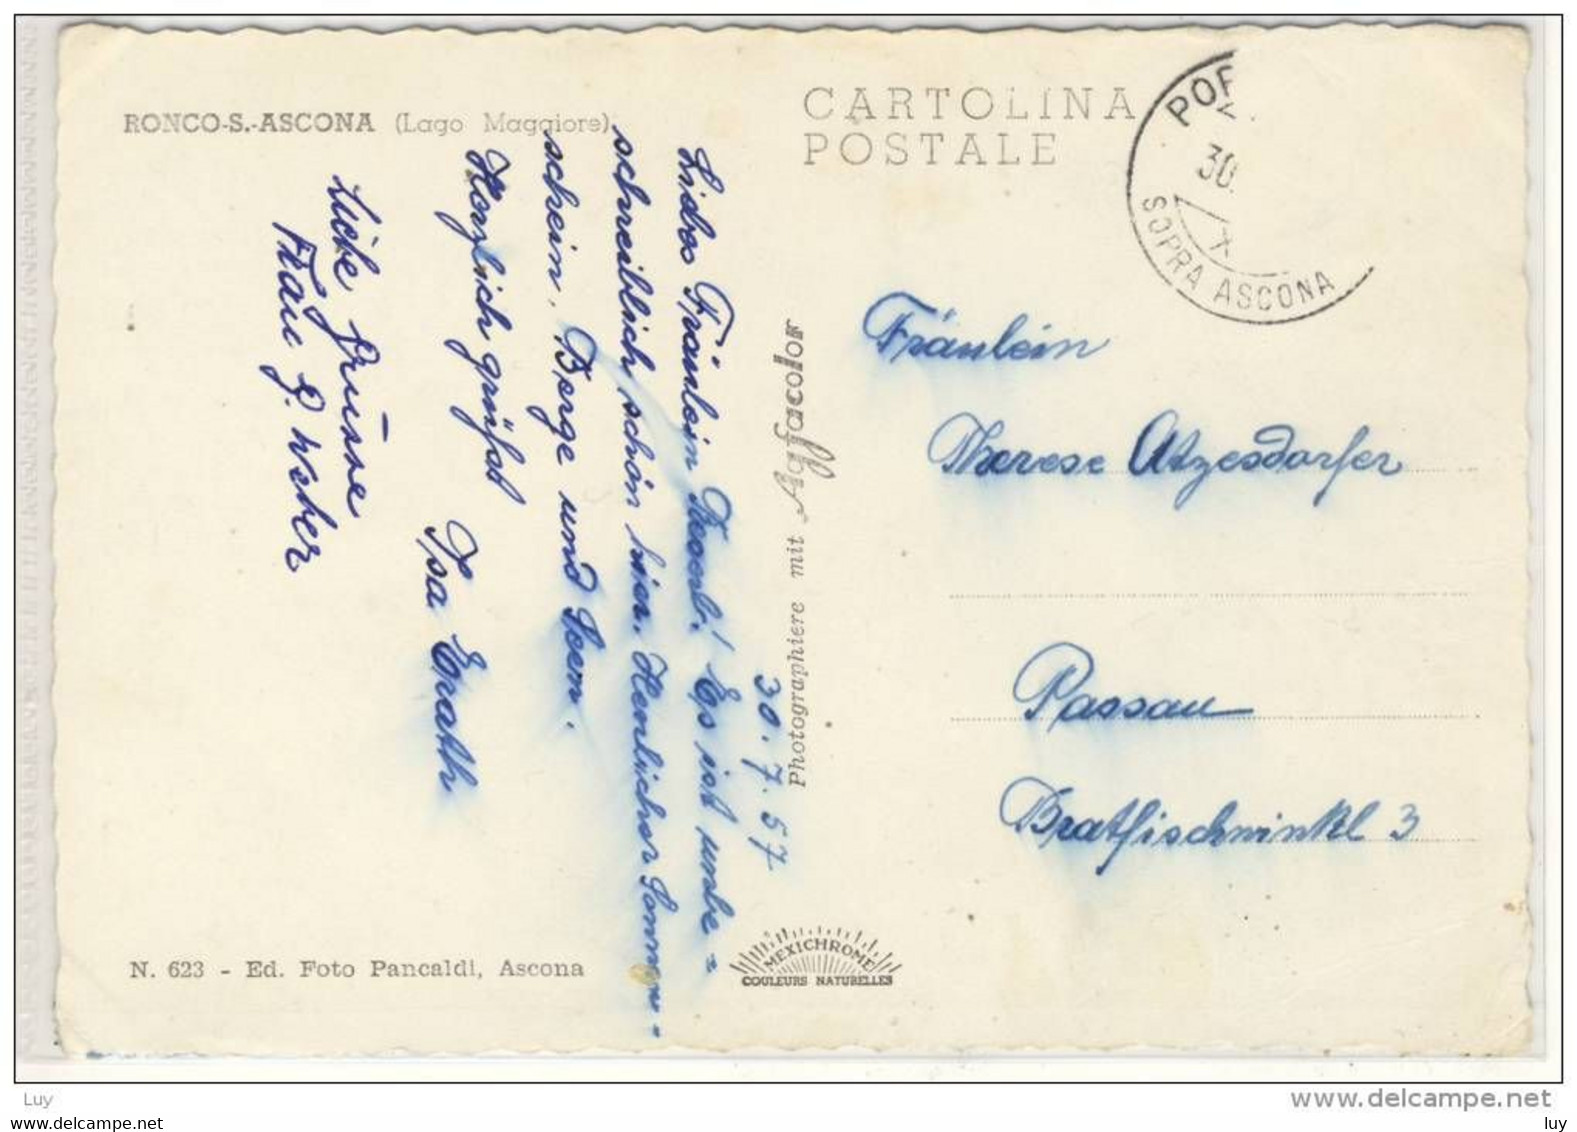 RONCO-S.-ASCONA (Lago Maggiore)
CARTOLINA
POSTALE
30.
SOPRA ASCONA
30. 7. 57
Liebes Fräulein Reserl! Es ist unbe-
schreiblich schön hier. Herrlicher Sonnen-
schein, Berge und Seen.
Herzlich grüßt
Isa Erath
Liebe Grüsse
Frau G. Weber
Photographiere mit Agfacolor
Fräulein
Therese Atzesdorfer
Passau
Bratfischwinkl 3
N. 623 - Ed. Foto Pancaldi, Ascona
MEXICHROME
COULEURS NATURELLES
Luy
www.delcampe.net
Luy
luy